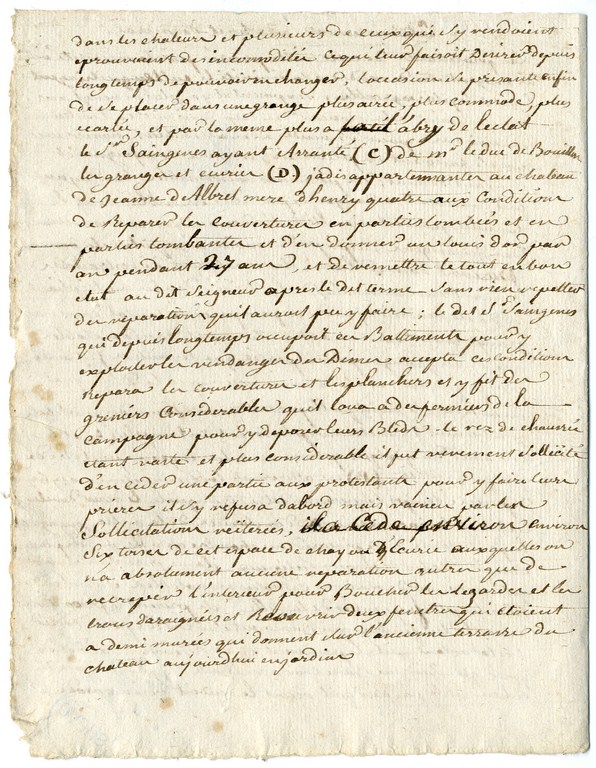 dans les chaleurs et plusieurs de ceux qui s'y rendoient
eprouvoient des incommodités ce qui leur faisoit Desirer depuis
longtemps de pouvoir en changer, l'occasion se presante enfin
de se placer dans une grange plus airée, plus commode, plus
ecartée, et par la meme plus a l'abry de leclat
le Sr. Saingenes ayant arranté (C) de mr. le duc de Bouillon
les granges et ecuries (D.) jadis appartennantes au chateau
de Jeanne d'Albret mere d'henry quatre aux Conditions
de Reparer les couvertures en parties tombées et en
parties tombantes et d'en donner un louis d'or par
an pendant 27 ans, et de remettre le tout en bon
etat au dit Seigneur apres le dit terme sans rien repetter
des reparations qu'il auroit peu y faire; le dit Sr. Saingenes
qui depuis longtemps occupoit ces Battiments pour y
exploiter les vendanges des Dimes accepta ces conditions
repara les couvertures et les planchers et y fit des
greniers Considerables qu'il loua a des fermiers de la
campagne pour y deposer leurs Bleds. le rez de chaussée
etant vaste et plus considerable il fut vivement sollicité
d'en ceder une partie aux protestants pour y faire leurs
prieres il s'y refusa dabord mais vaincu par les
Sollicitations reïterées, il a Cédé environ
Six toises de cet espace de chay ou Ecurie auxquelles on
n'a absolument aucune reparation autre que de
recrepir l'interieur pour Boucher les lezardes et les
trous d'araignées et Rouvrir deux fenetres qui etoient
a demi murées qui donnent sur l'ancienne terrasse du
chateau aujourd'hui en jardins